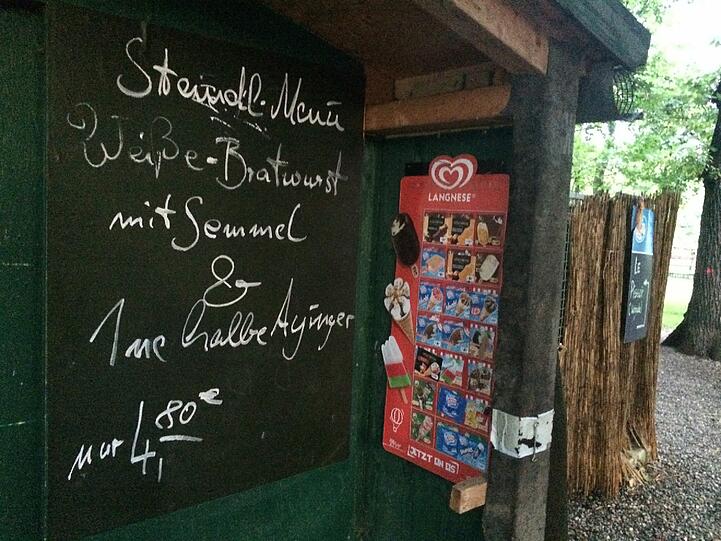 Steindl-Menü
Weiße-Bratwurst
mit Semmel
&
1ne halbe Ayinger
nur 4,80 €
LANGNESE
JETZT EIN EIS
Le